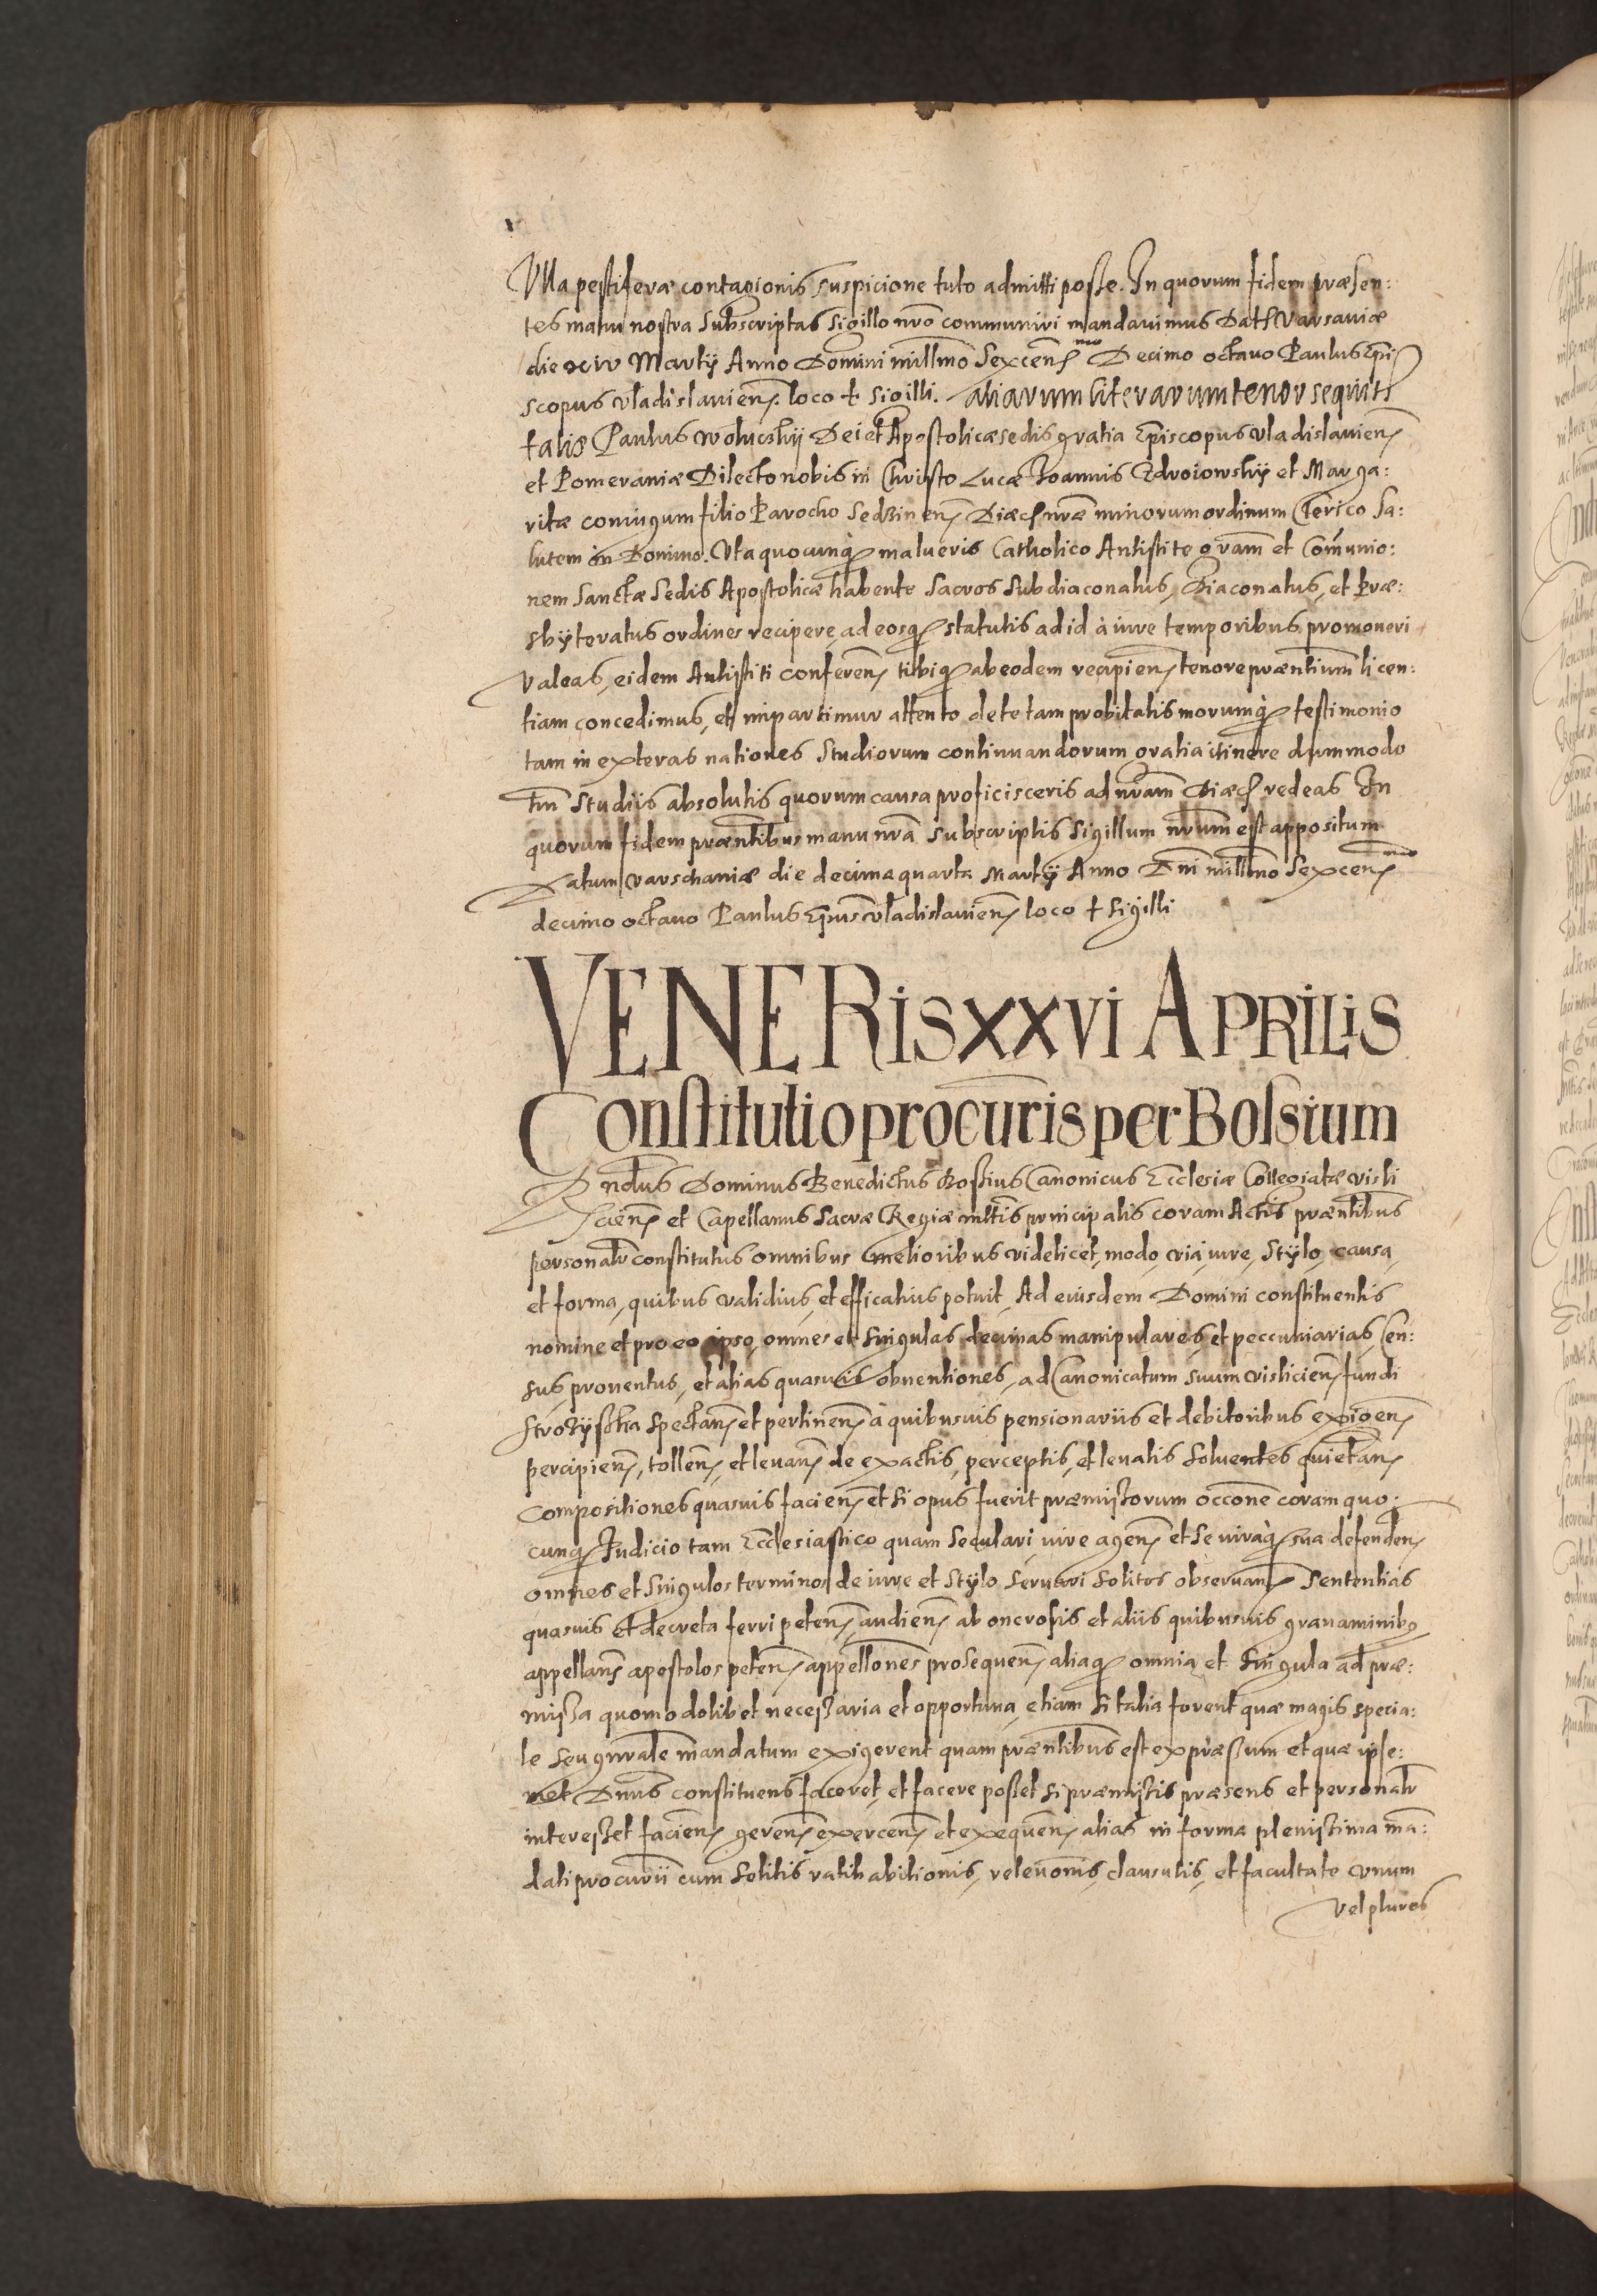 Vlla pestiferæ contagionis suspicione tuto admitti posse. In quorum fidem præsen:
tes manu nostra subscriptas sigillo nrō communiri mandauimus Dat Varsauiæ
die xiv Martÿ Anno Domini millmo Sexcen mo Decimo octauo Paulus Epi
scopus Vladislauien. loco + sigilli. aliarum literarum tenor sequitr
talis Paulus wolucskÿ Dei et Apostolicæ sedis gratia Episcopus Vladislauien
et Pomeraniæ Dilecto nobis in Christo Lucæ Joannis Zdroiowskÿ et Marga:
ritæ coniugum filio Parocho Sedzinen Diæc nræ minorum ordinum Clerico Sa:
lutem in Domino. Vt a quocunq malueris Catholico Antistite gram et Comunio:
nem Sanctæ Sedis Apostolicæ habente Sacros Subdiaconatus, Diaconatus, et Præ:
sbÿteratus ordines recipere, ad eosq statutis ad id à iure temporibus promoueri
valeas, eidem Antistiti conferen tibiq ab eodem recipien tenore præntium licen:
tiam concedimus, et impartimur attento de te tam probitatis morumq testimonio
tam in exteras nationes Studiorum continuandorum gratia itinere dummodo
tm Studiis absolutis quorum causa proficisceris ad nram Diæc redeas In
quorum fidem præntibus manu nrā subscriptis Sigillum nrum est appositum
Datum varschauiæ die decima quarta Martÿ Anno Dni millmo Sexcen mo
decimo octauo Paulus Epus Vladislauien loco + sigilli
VENERIS XXVI APRILIS
Constitutio procuris per Bossium
Rndus Dominus Benedictus Bossius Canonicus Ecclesiæ Collegiatæ visli
scien et Capellanus Sacræ Regiæ mttis principalis coram Actis præntibus
personalr constitutus omnibus melioribus videlicet, modo, via, iure, Stÿlo, causa,
et forma, quibus validius, et efficatius potuit, Ad eiusdem Domini constituentis
nomine et pro eo ipso, omnes et singulas decimas manipulares, et peccuniarias, Cen:
sus, prouentus, et alias quasuis obuentiones, ad Canonicatum suum visliciens fundi
spectan et pertinen à quibusuis pensionariis et debitoribus exigen
percipien, tollen, et leuan de exactis, perceptis, et leuatis Soluentes quietan
Compositiones quasuis facien et si opus fuerit præmissorum occone coram quo:
cunq Judicio tam Ecclesiastico quam Seculari iure agen et Se iuraq sua defenden
omnes et singulos terminos de iure et Stÿlo Seruari solitos obseruan Sententias
quasuis et decreta ferri peten, audien ab onerosis et aliis quibusuis grauaminibq
appellan, apostolos peten, appellones prosequen, aliaq omnia et singula ad præ:
missa quomodolibet necessaria et opportuna, etiam si talia forent quæ magis specia:
le seu gnrale mandatum exigerent quam præntibus est expræssum et quæ ipse:
met Dnus constituens faceret, et facere posset si præmissis præsens et personalr
interesset facien, geren, exercen et exequen alias in forma plenissima mā:
dati procurii cum solitis ratihabitionis, releuonis, clausulis, et facultate vnum
vel plures